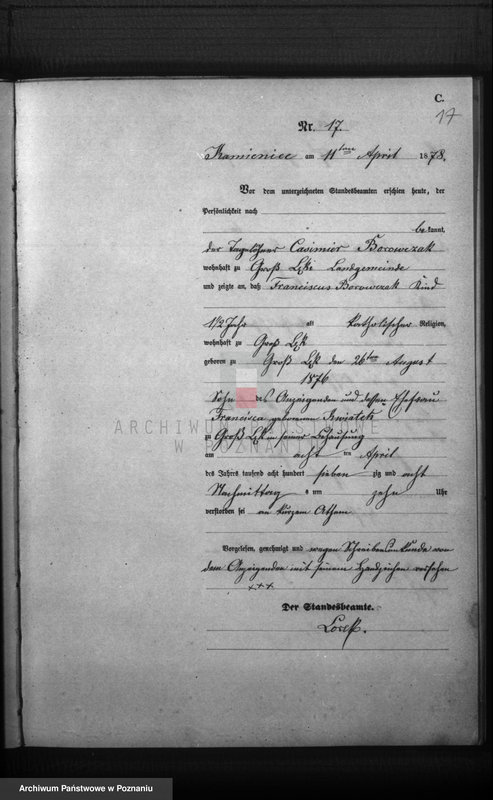 C.
17
Nr. 17.
Kamieniec am 11ten April 1878.
Vor dem unterzeichneten Standesbeamten erschien heute, der
Persönlichkeit nach
be kannt,
der Tagelöhner Casimier Borowczak
wohnhaft zu Groß Łęki Landgemeinde
und zeigte an, daß Franciscus Borowczak Kind
1 1/2 Jahr alt katholischer Religion,
wohnhaft zu Groß Łęk
geboren zu Groß Łęk den 26ten August
1876
Sohn des Anzeigenden und dessen Ehefrau
Francisca geborenen Kwiatek
zu Groß Łęk in seiner Behausung
am acht ten April
des Jahres tausend acht hundert sieben zig und acht
Nachmittag s um zehn Uhr
verstorben sei an kurzem Athem
Vorgelesen, genehmigt und wegen Schreibensunkunde von
dem Anzeigenden mit seinem Handzeichen versehen
+++
Der Standesbeamte.
ARCHIWUM PAŃSTWOWE
W POZNANIU
Archiwum Państwowe w Poznaniu